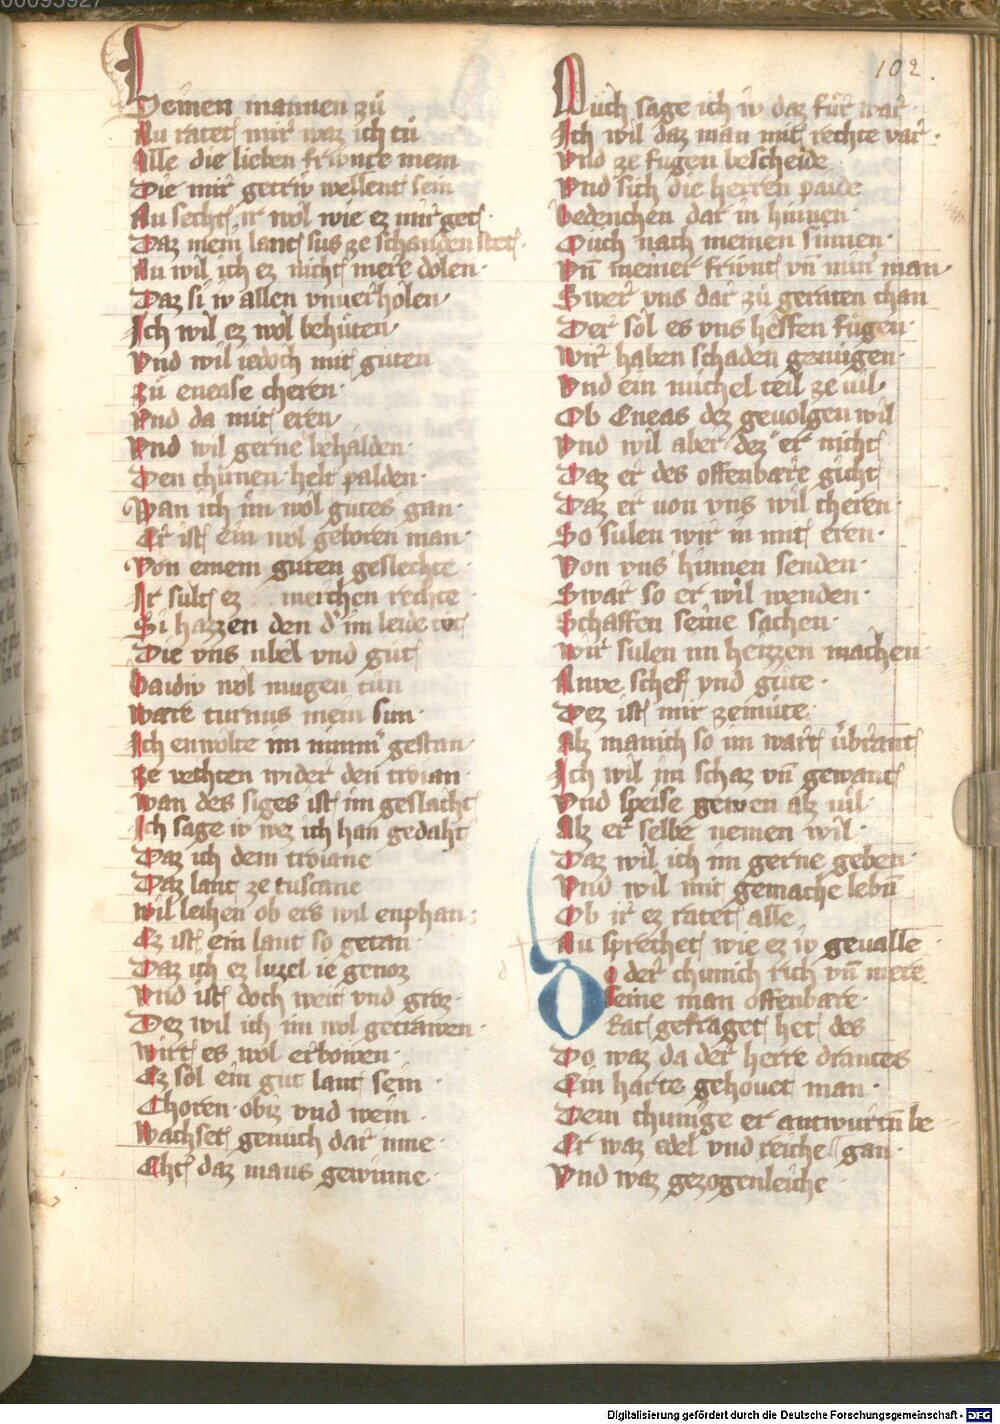 102.
Deinen mannen zů
Nu ratet mir waz ich tů
Alle die lieben friwnte mein
Die mir getriw wellent sein
Nu secht ir wol wie ez mir get·
Daz mein lant sus ze schanden stet·
Nu wil ich ez nicht mere dolen·
Daz si iw allen vnuerholen·
Ich wil ez wol behůten·
Vnd wil iedoch mit gůten
Zů enease cheren·
Vnd da mit eren·
Vnd wil gerne behalden·
Den chůnen helt palden·
Wan ich im wol gůtes gan·
Er ist ein wol geboren man·
Von einem guten geslechte·
Ir sult ez merchen rechte
Si hazzen den d' im leide tůt
Die vns ubel vnd gůt
Baidiw wol mugen tůn
Ware turnus mein sun·
Ich enwolte im nimm' gestan·
Ze vechten wider den troian·
Wan des siges ist im geslacht
Ich sage iw wez ich han gedaht
Daz ich dem troiane
Daz lant ze tuscane
Wil leihen ob ers wil enphan:
Ez ist ein lant so getan·
Daz ich ez luzel ie genoz
Vnd ist doch weit vnd groz·
Dez wil ich im wol getrawen·
Wirt es wol erbowen·
Ez sol ein gut lant sein·
Choren obiz vnd wein·
Wachset genůch dar inne·
Acht daz mans gewinne·
Auch sage ich iw daz fůr war·
Ich wil daz man mit rechte var·
Vnd ze fugen bescheide·
Vnd sich die herren paide
Bedenchen dar in hinnen·
Ouch nach meinen sinnen·
Vn̄ meiner friwnt vn̄ min' man·
Swer vns dar zů geraten chan
Der sol es vns helfen fůgen·
Wir haben schaden genůgen·
Vnd ein michel teil ze uil·
Ob Eneas dez geuolgen wil
Vnd wil aber dez er nicht
Daz er des offenbare gicht
Daz er uon vns wil cheren·
So sulen wir in mit eren·
Von vns hinnen senden·
Swar so er wil wenden·
Schaffen seine sachen·
Wir sulen im heizzen machen
Niwe schef vnd gůte·
Dez ist mir zemůte·
Alz manich so im wart ůbrant
Ich wil im schaz vn̄ gewant
Vnd speise gewen alz uil·
Alz er selbe nemen wil·
Daz wil ich im gerne geben·
Vnd wil mit gemache lebn̄
Ob ir ez ratet alle
Nu sprechet wie ez iw geualle·
Do der chunich rich vn̄ mere
Seine man offenbare·
Rat gefraget het des
Do waz da der herre drantes
Ein harte gehouet man·
Dem chunige er antwurtn̄ be
Er waz edel vnd reiche / gan·
Vnd waz gezogenleiche·
Digitalisierung gefördert durch die Deutsche Forschungsgemeinschaft - DFG